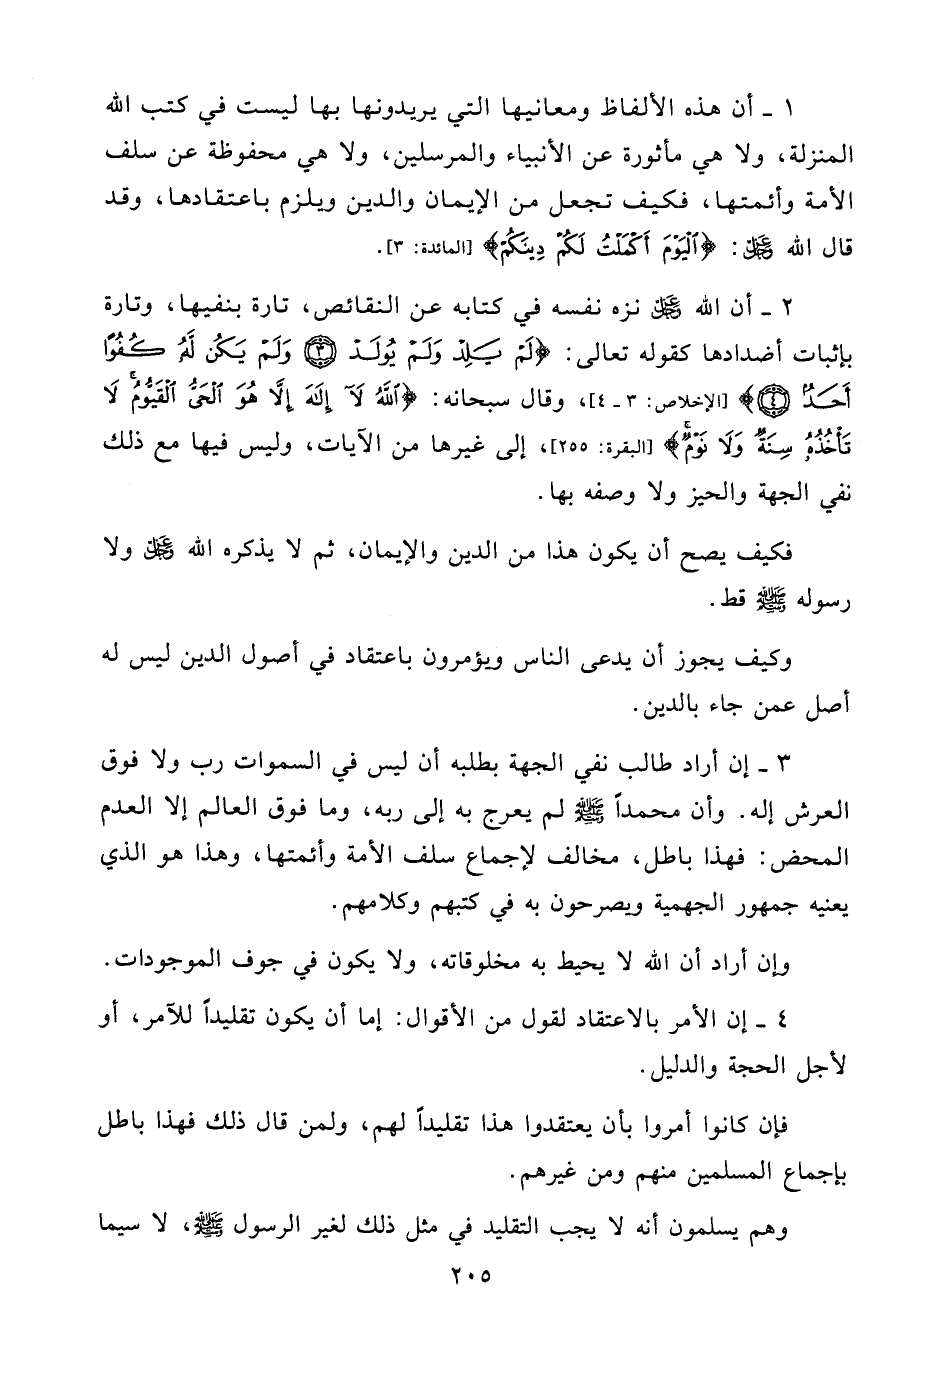 ١ ـ أن هذه الألفاظ ومعانيها التي يريدونها بها ليست في كتب الله
المنزلة، ولا هي مأثورة عن الأنبياء والمرسلين، ولا هي محفوظة عن سلف
الأمة وأئمتها، فكيف تجعل من الإيمان والدين ويلزم باعتقادها، وقد
قال الله ﷻ: ﴿ٱلْيَوْمَ أَكْمَلْتُ لَكُمْ دِينَكُمْ﴾ [المائدة: ٣].
٢ ـ أن الله ﷻ نزه نفسه في كتابه عن النقائص، تارة بنفيها، وتارة
بإثبات أضدادها كقوله تعالى: ﴿لَمْ يَـلِدْ وَلَمْ يُولَـدْ ٣ وَلَمْ يَكُن لَّهُۥ كُفُوًا
أَحَـدٌۢ ٤﴾ [الإخلاص: ٣ ـ ٤]، وقال سبحانه: ﴿ٱللَّهُ لَآ إِلَٰهَ إِلَّا هُوَ ٱلْحَىُّ ٱلْقَيُّومُۚ لَا
تَأْخُذُهُۥ سِنَةٌ وَلَا نَوْمٌۚ﴾ [البقرة: ٢٥٥]، إلى غيرها من الآيات، وليس فيها مع ذلك
نفي الجهة والحيز ولا وصفه بها.
فكيف يصح أن يكون هذا من الدين والإيمان، ثم لا يذكره الله ﷻ ولا
رسوله ﷺ قط.
وكيف يجوز أن يدعى الناس ويؤمرون باعتقاد في أصول الدين ليس له
أصل عمن جاء بالدين.
٣ ـ إن أراد طالب نفي الجهة بطلبه أن ليس في السموات رب ولا فوق
العرش إله. وأن محمداً ﷺ لم يعرج به إلى ربه، وما فوق العالم إلا العدم
المحض: فهذا باطل، مخالف لإجماع سلف الأمة وأئمتها، وهذا هو الذي
يعنيه جمهور الجهمية ويصرحون به في كتبهم وكلامهم.
وإن أراد أن الله لا يحيط به مخلوقاته، ولا يكون في جوف الموجودات.
٤ ـ إن الأمر بالاعتقاد لقول من الأقوال: إما أن يكون تقليداً للآمر، أو
لأجل الحجة والدليل.
فإن كانوا أمروا بأن يعتقدوا هذا تقليداً لهم، ولمن قال ذلك فهذا باطل
بإجماع المسلمين منهم ومن غيرهم.
وهم يسلمون أنه لا يجب التقليد في مثل ذلك لغير الرسول ﷺ، لا سيما
٢٠٥